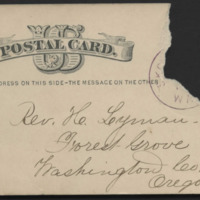 US
POSTAL CARD.
DRESS ON THIS SIDE – THE MESSAGE ON THE OTHER
Rev. H. Lyman
Forest Grove
Washington Co.
Orego